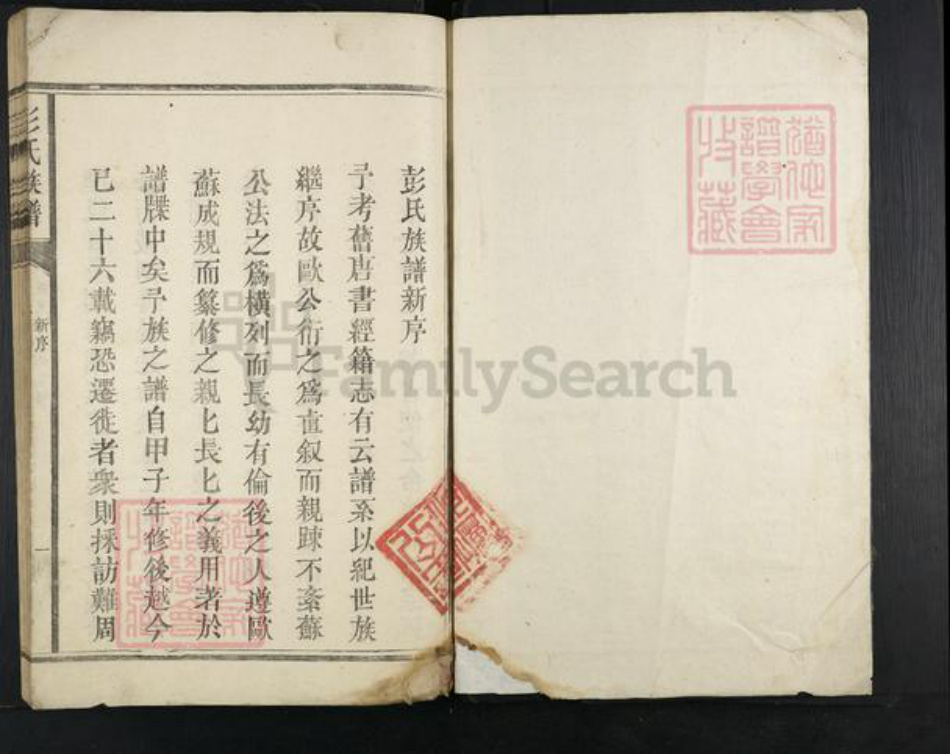 彭氏族譜新序
予考舊唐書經籍志有云譜系以紀世族
繼序故歐公衍之爲直叙而親踈不紊蘇
公法之爲橫列而長幼有倫後之人遵歐
蘇成規而纂修之親匕長匕之義用著於
譜牒中矣予族之譜自甲子年修後越今
已二十六載竊恐遷徙者衆則採訪難周
彭氏族譜
新序
一
FamilySearch
譜學會
收藏